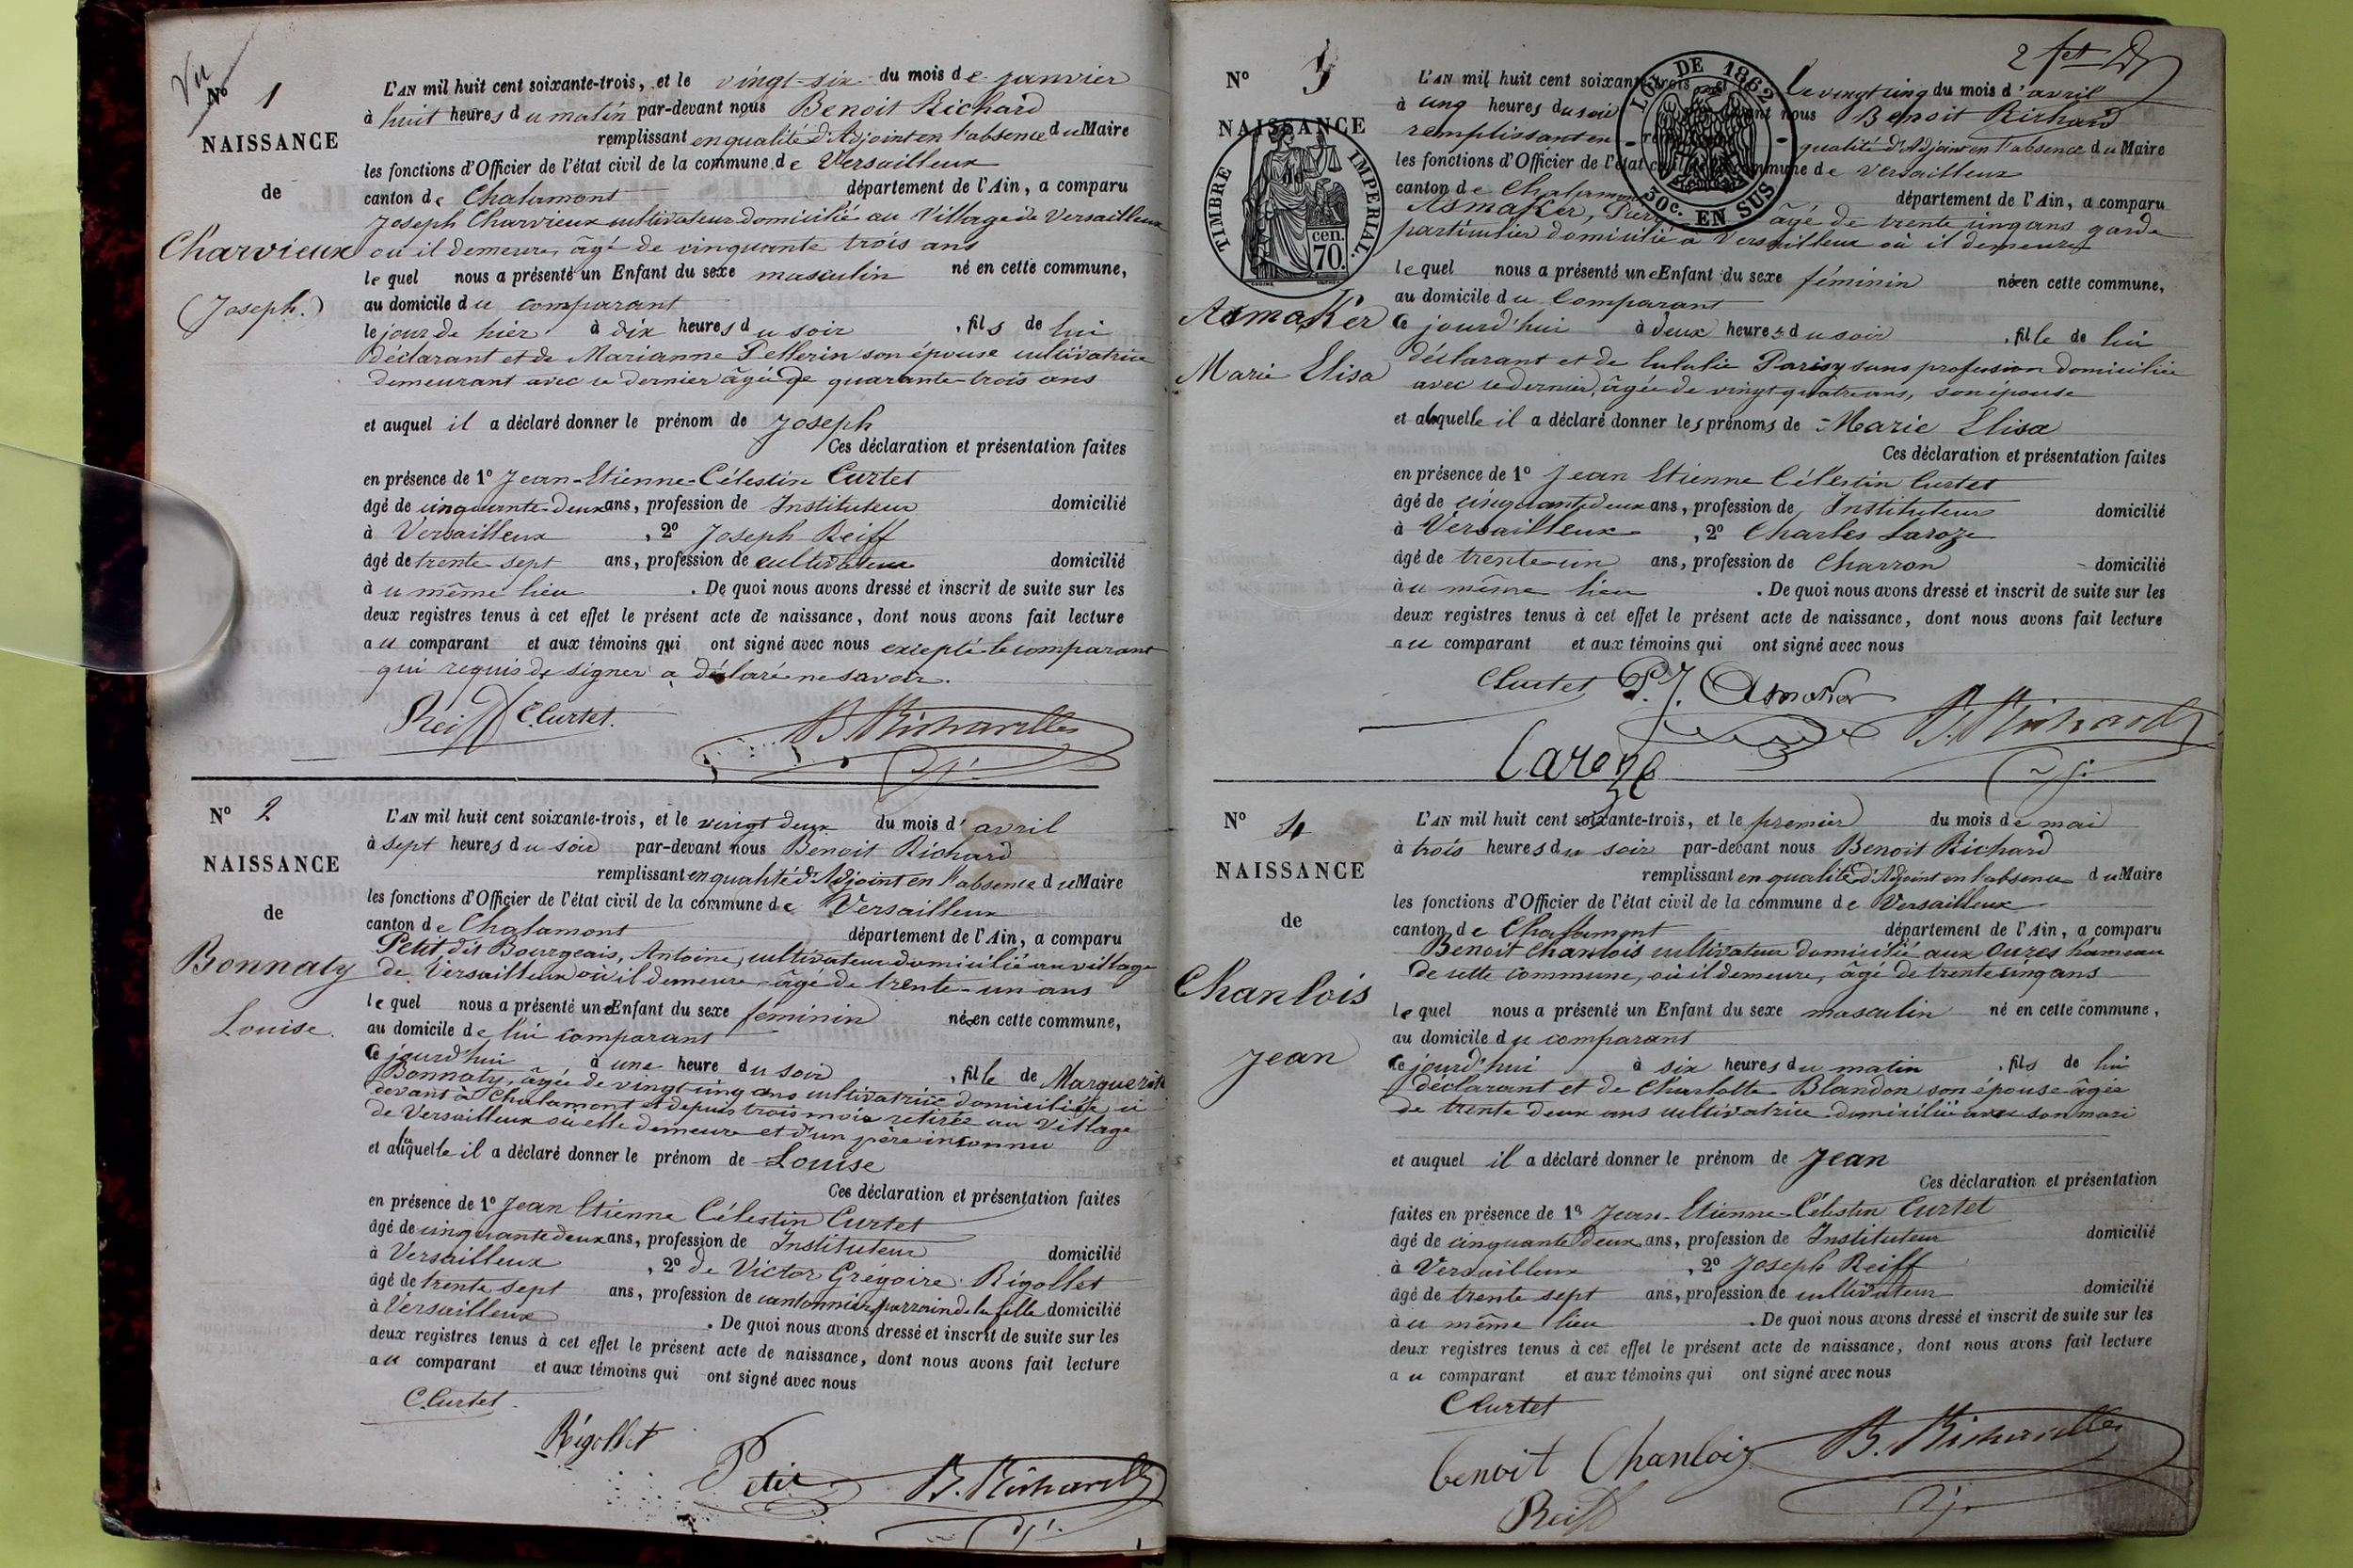 Vu
N° 1
NAISSANCE
de
Charvieux
(Joseph.)
L'AN mil huit cent soixante-trois, et le vingt-six du mois de janvier
à huit heures du matin par-devant nous Benoit Richard
remplissant en qualité d'Adjoint en l'absence du Maire
les fonctions d'Officier de l'état civil de la commune de Versailleux
canton de Chalamont département de l'Ain, a comparu
Joseph Charvieux cultivateur domicilié au Village de Versailleux
où il demeure, âgé de cinquante trois ans
lequel nous a présenté un Enfant du sexe masculin né en cette commune,
au domicile du comparant
le jour de hier à dix heures du soir, fils de lui
déclarant et de Marianne Pellerin son épouse cultivatrice
demeurant avec ce dernier âgée de quarante-trois ans
et auquel il a déclaré donner le prénom de Joseph
Ces déclaration et présentation faites
en présence de 1° Jean-Etienne-Célestin Curtet
âgé de cinquante-deux ans, profession de Instituteur domicilié
à Versailleux, 2° Joseph Reiff
âgé de trente sept ans, profession de cultivateur domicilié
au même lieu. De quoi nous avons dressé et inscrit de suite sur les
deux registres tenus à cet effet le présent acte de naissance, dont nous avons fait lecture
au comparant et aux témoins qui ont signé avec nous excepté le comparant
qui requis de signer a déclaré ne savoir.
Reiff C. Curtet. B. Richard
N° 2
NAISSANCE
de
Bonnaty
Louise.
L'AN mil huit cent soixante-trois, et le vingt deux du mois d'avril
à sept heures du soir par-devant nous Benoit Richard
remplissant en qualité d'Adjoint en l'absence du Maire
les fonctions d'Officier de l'état civil de la commune de Versailleux
canton de Chalamont département de l'Ain, a comparu
Petit, dit Bourgeais, Antoine, cultivateur domicilié au village
de Versailleux où il demeure, âgé de trente-un ans
lequel nous a présenté une Enfant du sexe féminin née en cette commune,
au domicile de lui comparant
Ce jourd'hui à une heure du soir, fille de Marguerite
Bonnaty, âgée de vingt cinq ans cultivatrice domiciliée ci
devant à Chalamont et depuis trois mois retirée au Village
de Versailleux où elle demeure et d'un père inconnu
et à laquelle il a déclaré donner le prénom de Louise
Ces déclaration et présentation faites
en présence de 1° Jean Etienne Célestin Curtet
âgé de cinquante deux ans, profession de Instituteur domicilié
à Versailleux, 2° de Victor Grégoire Rigollet
âgé de trente sept ans, profession de cantonnier, parrain de la fille domicilié
à Versailleux. De quoi nous avons dressé et inscrit de suite sur les
deux registres tenus à cet effet le présent acte de naissance, dont nous avons fait lecture
au comparant et aux témoins qui ont signé avec nous
C. Curtet
Rigollet
Petit B. Richard
2 fet
N° 3
NAISSANCE
de
TIMBRE IMPERIAL.
cen. 70.
Asmaker
Marie Elisa
LOI DE 1862
30c. EN SUS
L'AN mil huit cent soixante-trois le vingt cinq du mois d'avril
à cinq heures du soir nous Benoit Richard
remplissant en qualité d'Adjoint en l'absence du Maire
les fonctions d'Officier de l'état commune de Versailleux
canton de Chalamont département de l'Ain, a comparu
Asmaker, âgé de trente cinq ans garde
particulier domicilié à Versailleux où il demeure
lequel nous a présenté une Enfant du sexe féminin née en cette commune,
au domicile du Comparant
Ce jourd'hui à deux heures du soir, fille de lui
déclarant et de Eulalie Parisy sans profession domiciliée
avec ce dernier, âgée de vingt quatre ans, son épouse
et à laquelle il a déclaré donner les prénoms de Marie Elisa
Ces déclaration et présentation faites
en présence de 1° Jean Etienne Célestin Curtet
âgé de cinquante deux ans, profession de Instituteur domicilié
à Versailleux, 2° Charles Laroze
âgé de trente-un ans, profession de Charron domicilié
au même lieu. De quoi nous avons dressé et inscrit de suite sur les
deux registres tenus à cet effet le présent acte de naissance, dont nous avons fait lecture
au comparant et aux témoins qui ont signé avec nous
C. Curtet P. J. Asmaker B. Richard
Laroze
N° 4
NAISSANCE
de
Chanlois
Jean
L'AN mil huit cent soixante-trois, et le premier du mois de mai
à trois heures du soir par-devant nous Benoit Richard
remplissant en qualité d'Adjoint en l'absence du Maire
les fonctions d'Officier de l'état civil de la commune de Versailleux
canton de Chalamont département de l'Ain, a comparu
Benoit Chanlois cultivateur domicilié aux Oures hameau
de cette commune, où il demeure, âgé de trente cinq ans
lequel nous a présenté un Enfant du sexe masculin né en cette commune,
au domicile du comparant
Ce jourd'hui à six heures du matin, fils de lui
déclarant et de Charlotte Blandon son épouse âgée
de trente deux ans cultivatrice domiciliée avec son mari
et auquel il a déclaré donner le prénom de Jean
Ces déclaration et présentation
faites en présence de 1° Jean-Etienne-Célestin Curtet
âgé de cinquante deux ans, profession de Instituteur domicilié
à Versailleux, 2° Joseph Reiff
âgé de trente sept ans, profession de cultivateur domicilié
au même lieu. De quoi nous avons dressé et inscrit de suite sur les
deux registres tenus à cet effet le présent acte de naissance, dont nous avons fait lecture
au comparant et aux témoins qui ont signé avec nous
C. Curtet
benoit Chanlois B. Richard
Reiff